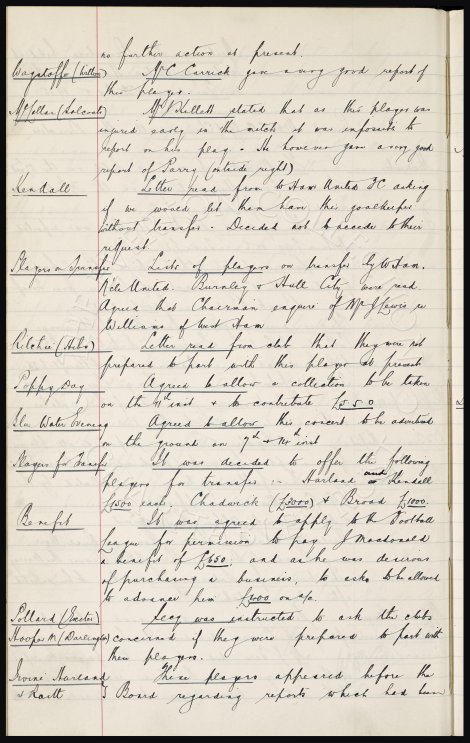 no further action at present.
Wagstaffe (Luton) Mr C Carrick gave a very good report of
this player.
McCollar (Holcoats) Mr Kellett stated that as this player was
injured early in the match it was impossible to
report on his play. He however gave a very good
report of Parry (outside right)
Kendall Letter read from W Ham United FC asking
if we would let them have this goalkeeper
without transfer. Decided not to accede to their
request.
Players on Transfer Lists of players on transfer by W Ham.
N'cle United. Burnley & Hull City were read.
Agreed that Chairman enquire of Mr J Lewis re
Williams of West Ham
Ritchie (Hibs) Letter read from club that they were not
prepared to part with this player at present
Poppy Day Agreed to allow a collection to be taken
on the 11th inst & to contribute £5.5.0
Water Evening Agreed to allow this concert to be advertised
on the ground on 7th & 14th inst
Players for Transfer It was decided to offer the following
players for transfer :- Harland and Kendall
£1500 each. Chadwick (£2000) & Broad £1000.
Benefit It was agreed to apply to the Football
League for permission to pay J Macdonald
a benefit of £650 and as he was desirous
of purchasing a business, to ask to be allowed
to advance him £1000 on a/c.
Pollard (Exeter) Secy was instructed to ask the clubs
Hooper M (Darlington) concerned if they were prepared to part with
these players.
Irvine Harland These players appeared before the
& Raitt } Board regarding reports which had been